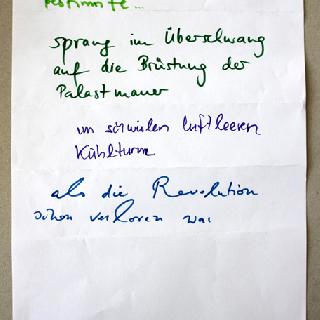 sprang im Überschwang
auf die Brüstung der
Palastmauer
im schwülen luftleeren
Kühlturm
als die Revolution
schon verloren war